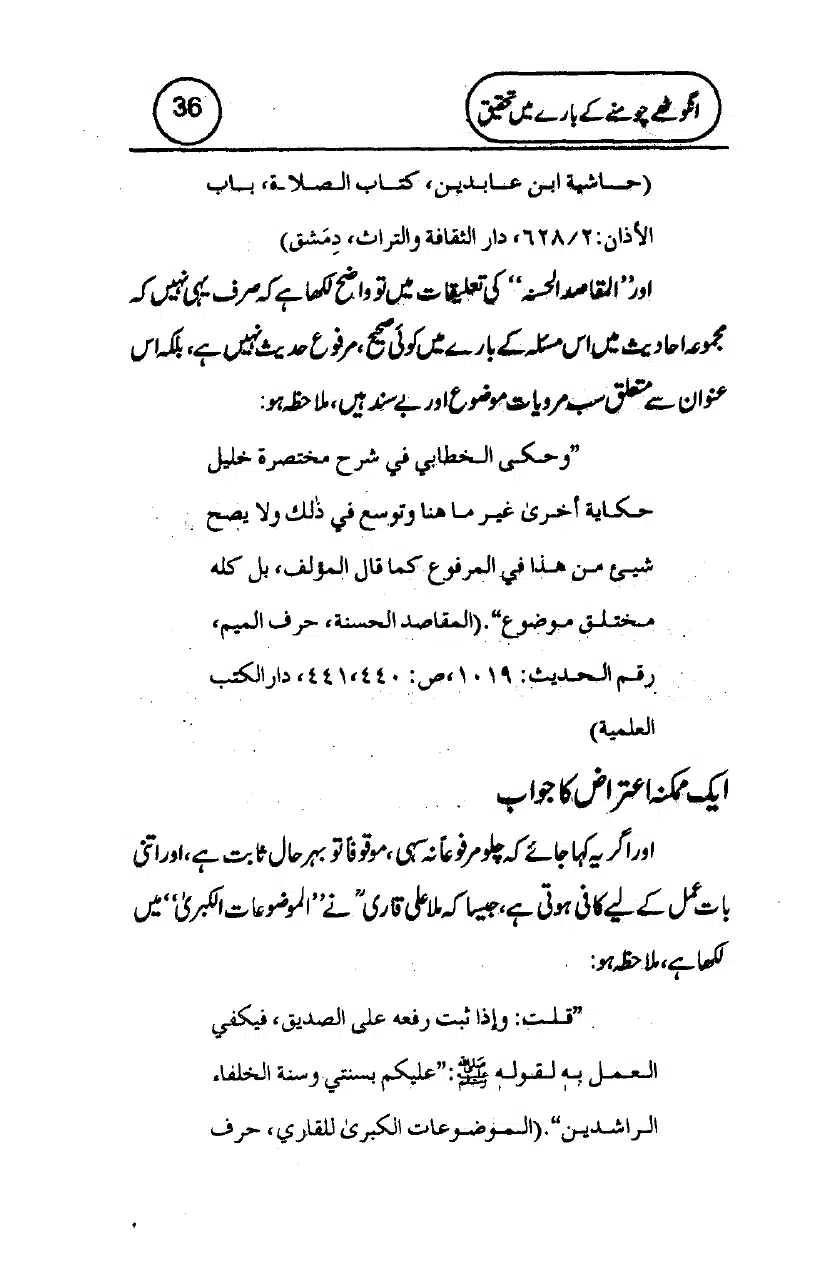 انگوٹھے چومنے کے بارے میں تحقیق
36
(حاشية ابن عابدين، كتاب الصلاة، باب
الأذان: ٦٢٨/٢، دار الثقافة والتراث، دِمَشق)
اور ”المقاصد الحسنہ“ کی تعلیقات میں تو واضح لکھا ہے کہ صرف یہی نہیں کہ
مجموعہ احادیث میں اس مسئلہ کے بارے میں کوئی صحیح، مرفوع حدیث نہیں ہے، بلکہ اس
عنوان سے متعلق سب مرویات موضوع اور بے سند ہیں، ملاحظہ ہو:
”وحكى الخطابي في شرح مختصرة خليل
حكاية أخرىٰ غير ما هنا وتوسع في ذٰلك ولا يصح
شيئ من هذا في المرفوع كما قال المؤلف، بل كله
مختلق موضوع“. (المقاصد الحسنة، حرف الميم،
رقم الحديث: ١٠١٩، ص: ٤٤١،٤٤٠، دار الكتب
العلمية)
ایک ممکنہ اعتراض کا جواب
اور اگر یہ کہا جائے کہ چلو مرفوعاً نہ سہی، موقوفاً تو بہر حال ثابت ہے، اور اتنی
بات عمل کے لیے کافی ہوتی ہے، جیسا کہ ملا علی قاریؒ نے ”الموضوعات الکبریٰ“ میں
لکھا ہے، ملاحظہ ہو:
”قلت: وإذا ثبت رفعه على الصديق، فيكفي
العمل به لقوله ﷺ: ”عليكم بسنتي وسنة الخلفاء
الراشدين“. (الموضوعات الكبرىٰ للقاري، حرف